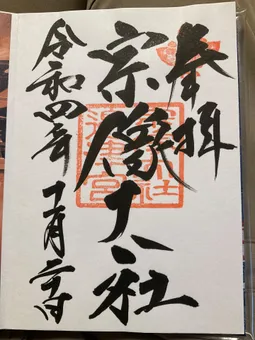 奉拝
宗像大社
令和四年十一月二十日